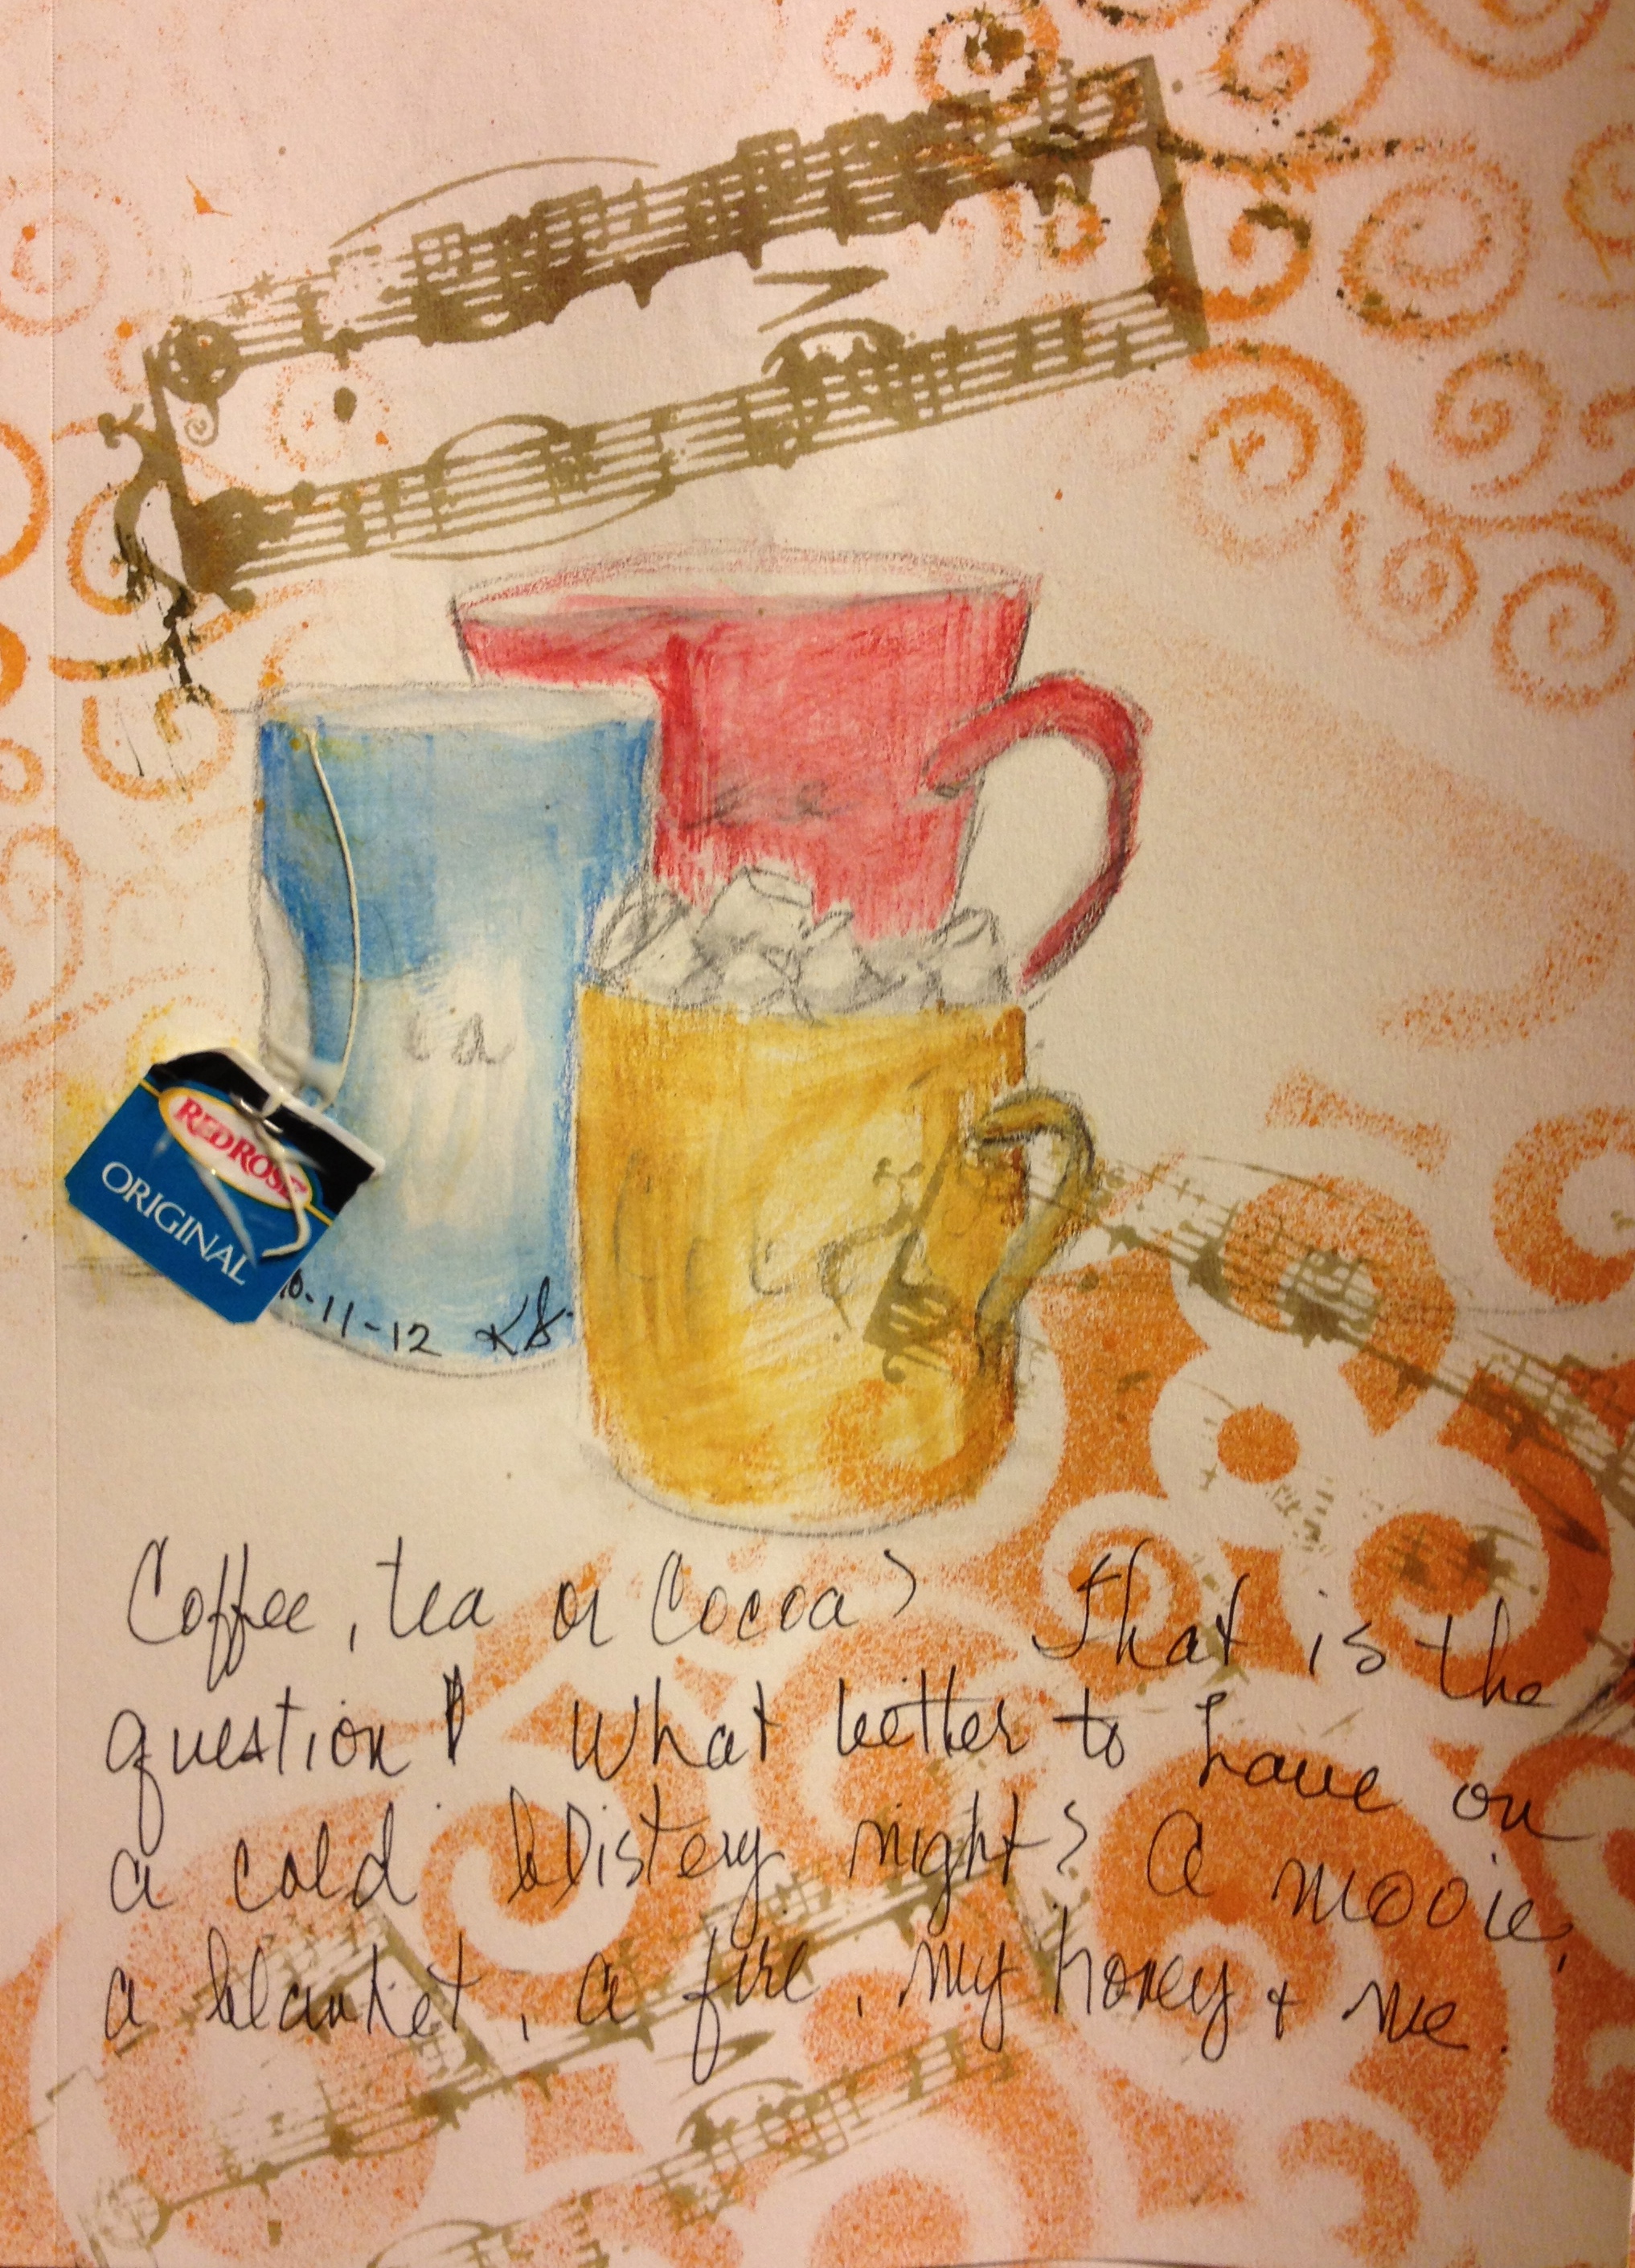 ee
ea
REDROSE
ORIGINAL
10-11-12 KS
Coffee, tea or Cocoa? That is the
question! What better to have on
a cold blistery night? A movie,
a blanket, a fire, my honey & me.